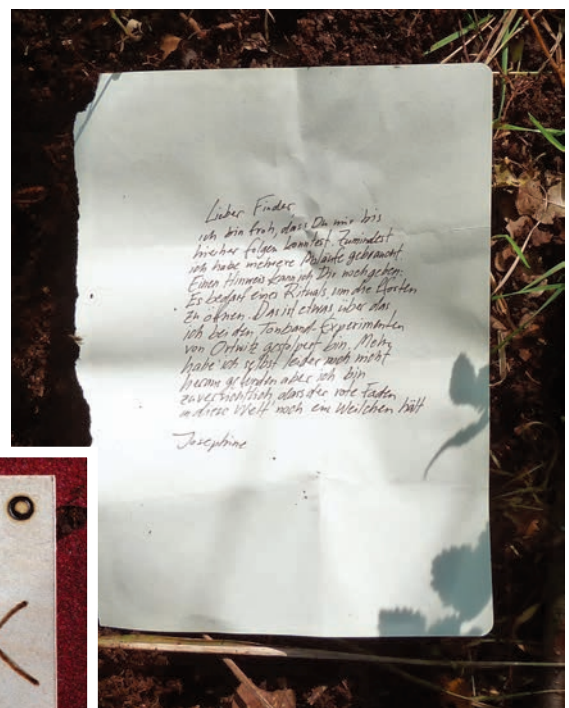 Lieber Finder
ich bin froh, dass Du mir bis
hierher folgen konntest. Zumindest
ich habe mehrere Anläufe gebraucht.
Einen Hinweis kann ich Dir noch geben:
Es bedarf eines Rituals, um die Pforten
zu öffnen. Das ist etwas über das
ich bei den Tonband-Experimenten
von Ortwitz gestolpert bin. Mehr
habe ich selbst leider noch nicht
heraus gefunden aber ich bin
zuversichtlich, dass der rote Faden
in diese Welt noch ein Weilchen hält
Josephine